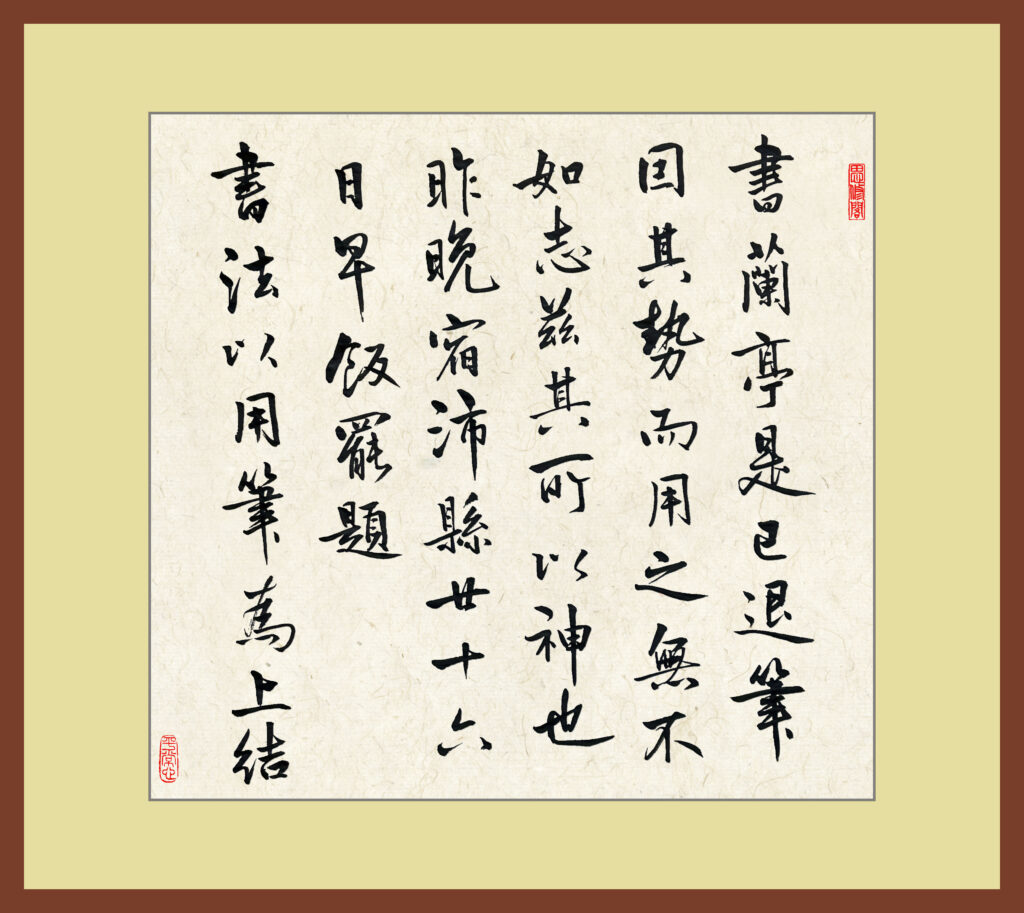 思修閣
書蘭亭是已退筆
因其勢而用之無不
如志茲其所以神也
昨晚宿沛縣廿十六
日早飯罷題
書法以用筆為上結
平常心